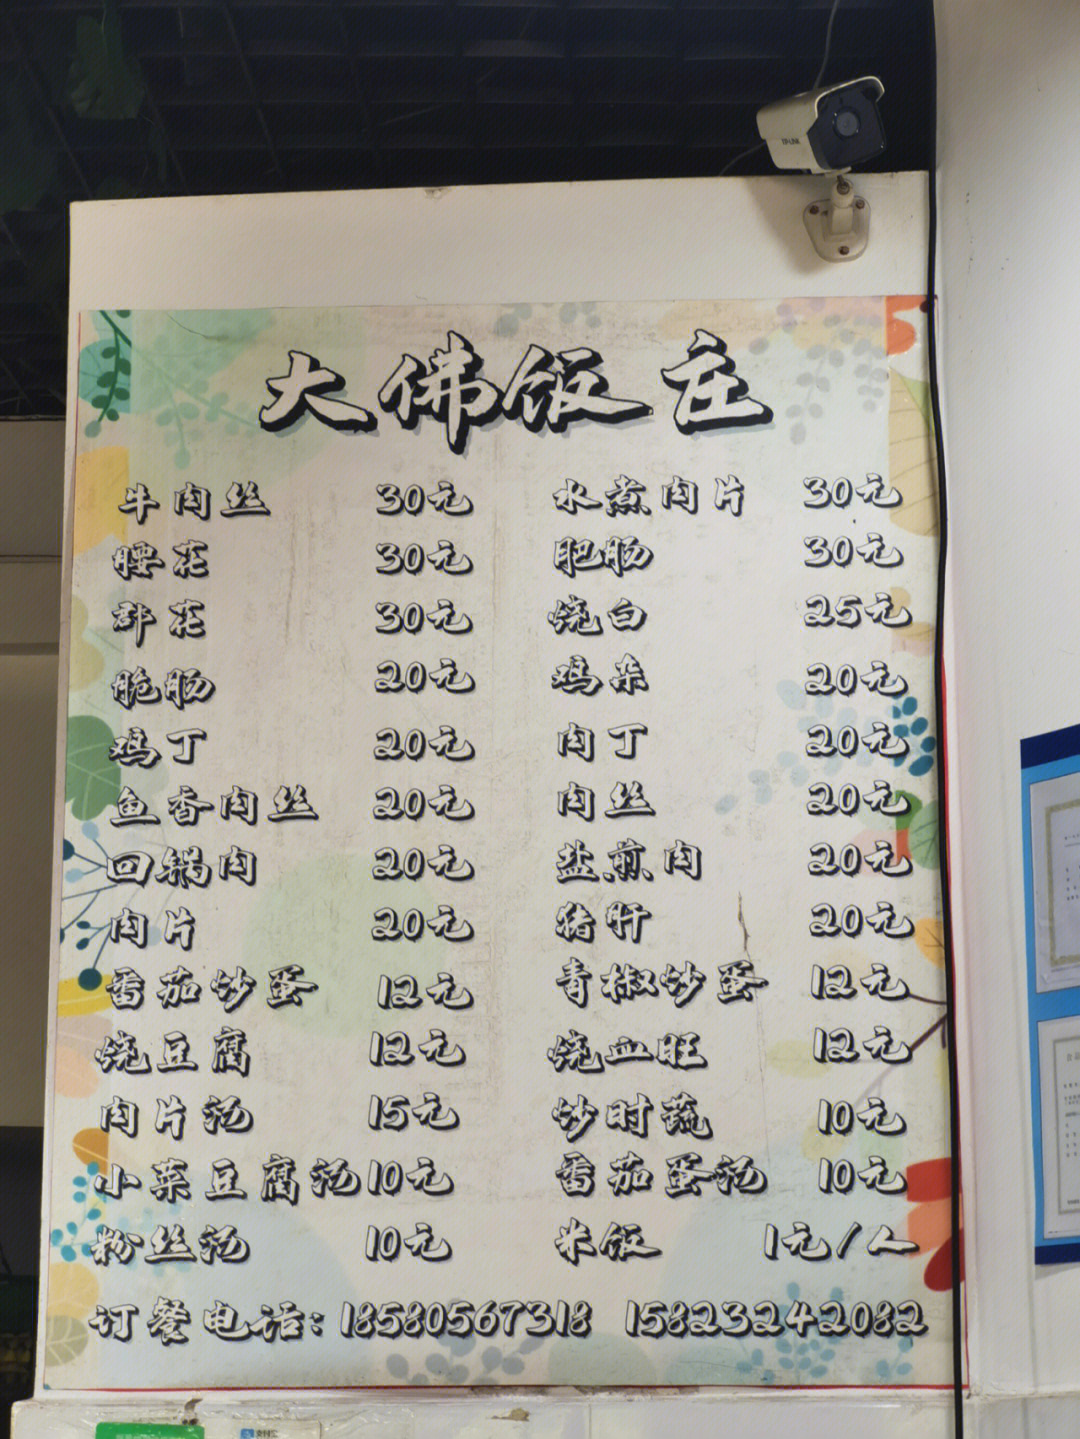 TP-LINK
大佛饭庄
牛肉丝 30元 水煮肉片 30元
腰花 30元 肥肠 30元
郡花 30元 烧白 25元
脆肠 20元 鸡杂 20元
鸡丁 20元 肉丁 20元
鱼香肉丝 20元 肉丝 20元
回锅肉 20元 盐煎肉 20元
肉片 20元 猪肝 20元
番茄炒蛋 12元 青椒炒蛋 12元
烧豆腐 12元 烧血旺 12元
肉片汤 15元 炒时蔬 10元
小菜豆腐汤 10元 番茄蛋汤 10元
粉丝汤 10元 米饭 1元/人
订餐电话: 18580567318 15823242082